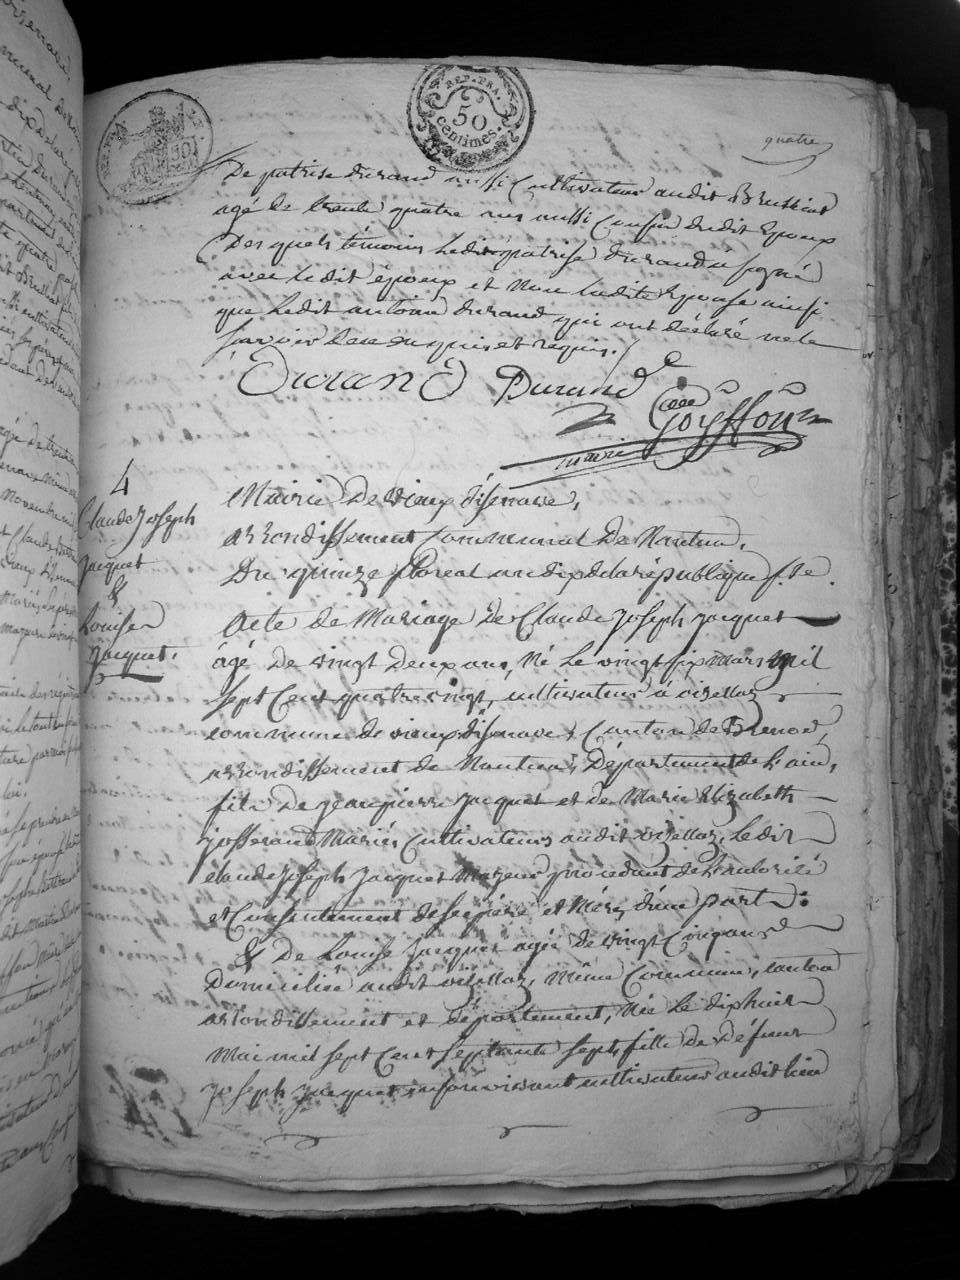 REP. FRA.
50
centimes.
quatre
De patrise durand aussi Cultivateur audit Brussiat
agé de trente quatre ans aussi Cousin dudit Epoux
Des quels témoins Ledit patrise durand a signé
avec Ledit époux et Non Ladite Epouse ainsi
que Ledit antoine durand qui ont déclaré ne le
savoir de ce enquis et requis. /
Durand Durand
Goyffon
maire
4
Claude Joseph
Jacquet
&
Louise
Jacquet.
Mairie De vieux disenave,
arrondissement Communal De Nantua,
Du quinze floreal an dix de la république f.se.
Acte de Mariage De Claude Joseph Jacquet
âgé De vingt Deux ans, Né Le vingt six mars Mil
sept Cent quatre vingt, cultivateur à vizellaz
commune de vieux disenave, Canton de Brenod,
arrondissement de Nantua, Département de L'ain,
fils De jean pierre Jacquet et de Marie Elizabeth
josserand Mariés Cultivateurs audit vizellaz, Ledit
claude Joseph Jacquet Mazeur procedant de L'autorité
et Consentement de ses père et Mère, d'une part :
& De Louise Jacquet agée de vingt Cinq ans
Domiciliée audit vizellaz, Même Commune, canton
arrondissement et département, Née Le dix huit
Mai mil sept Cent septante sept, fille De Défunt
Joseph Jacquet en son vivant cultivateur audit lieu